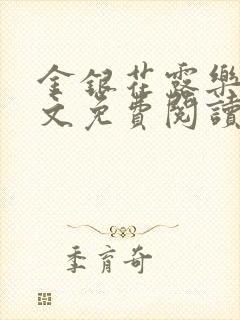 金銀花露樂
文免費閱讀
季育奇